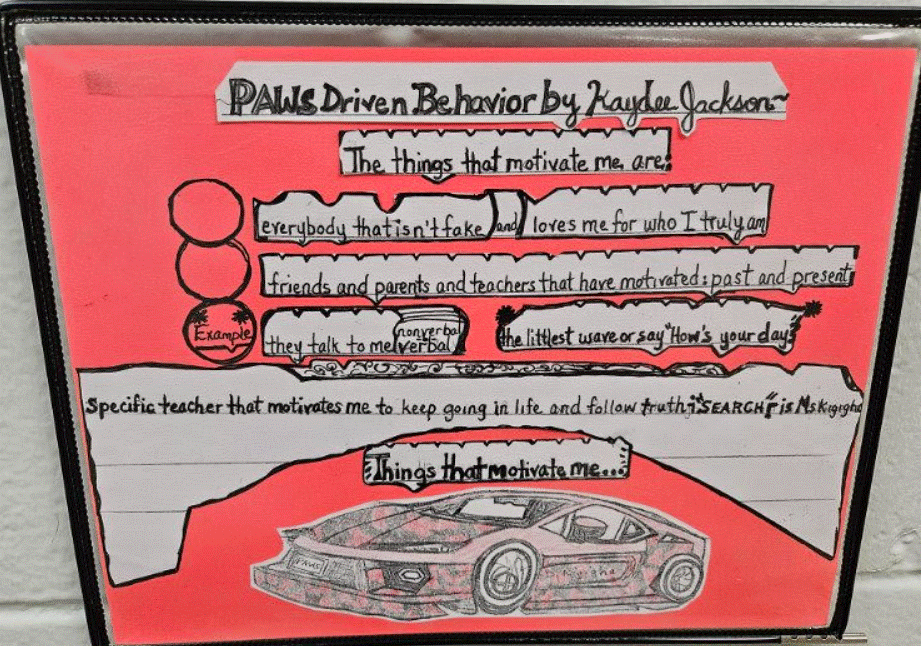 PAWS Driven Behavior by Kaydee Jackson~
The things that motivate me are:
everybody that isn't fake and loves me for who I truly am
friends and parents and teachers that have motivated: past and present
Example
they talk to me nonverbal verbal
the littlest wave or say "How's your day"
Specific teacher that motivates me to keep going in life and follow truth "SEARCH" is Ms
Things that motivate me...
PAWS